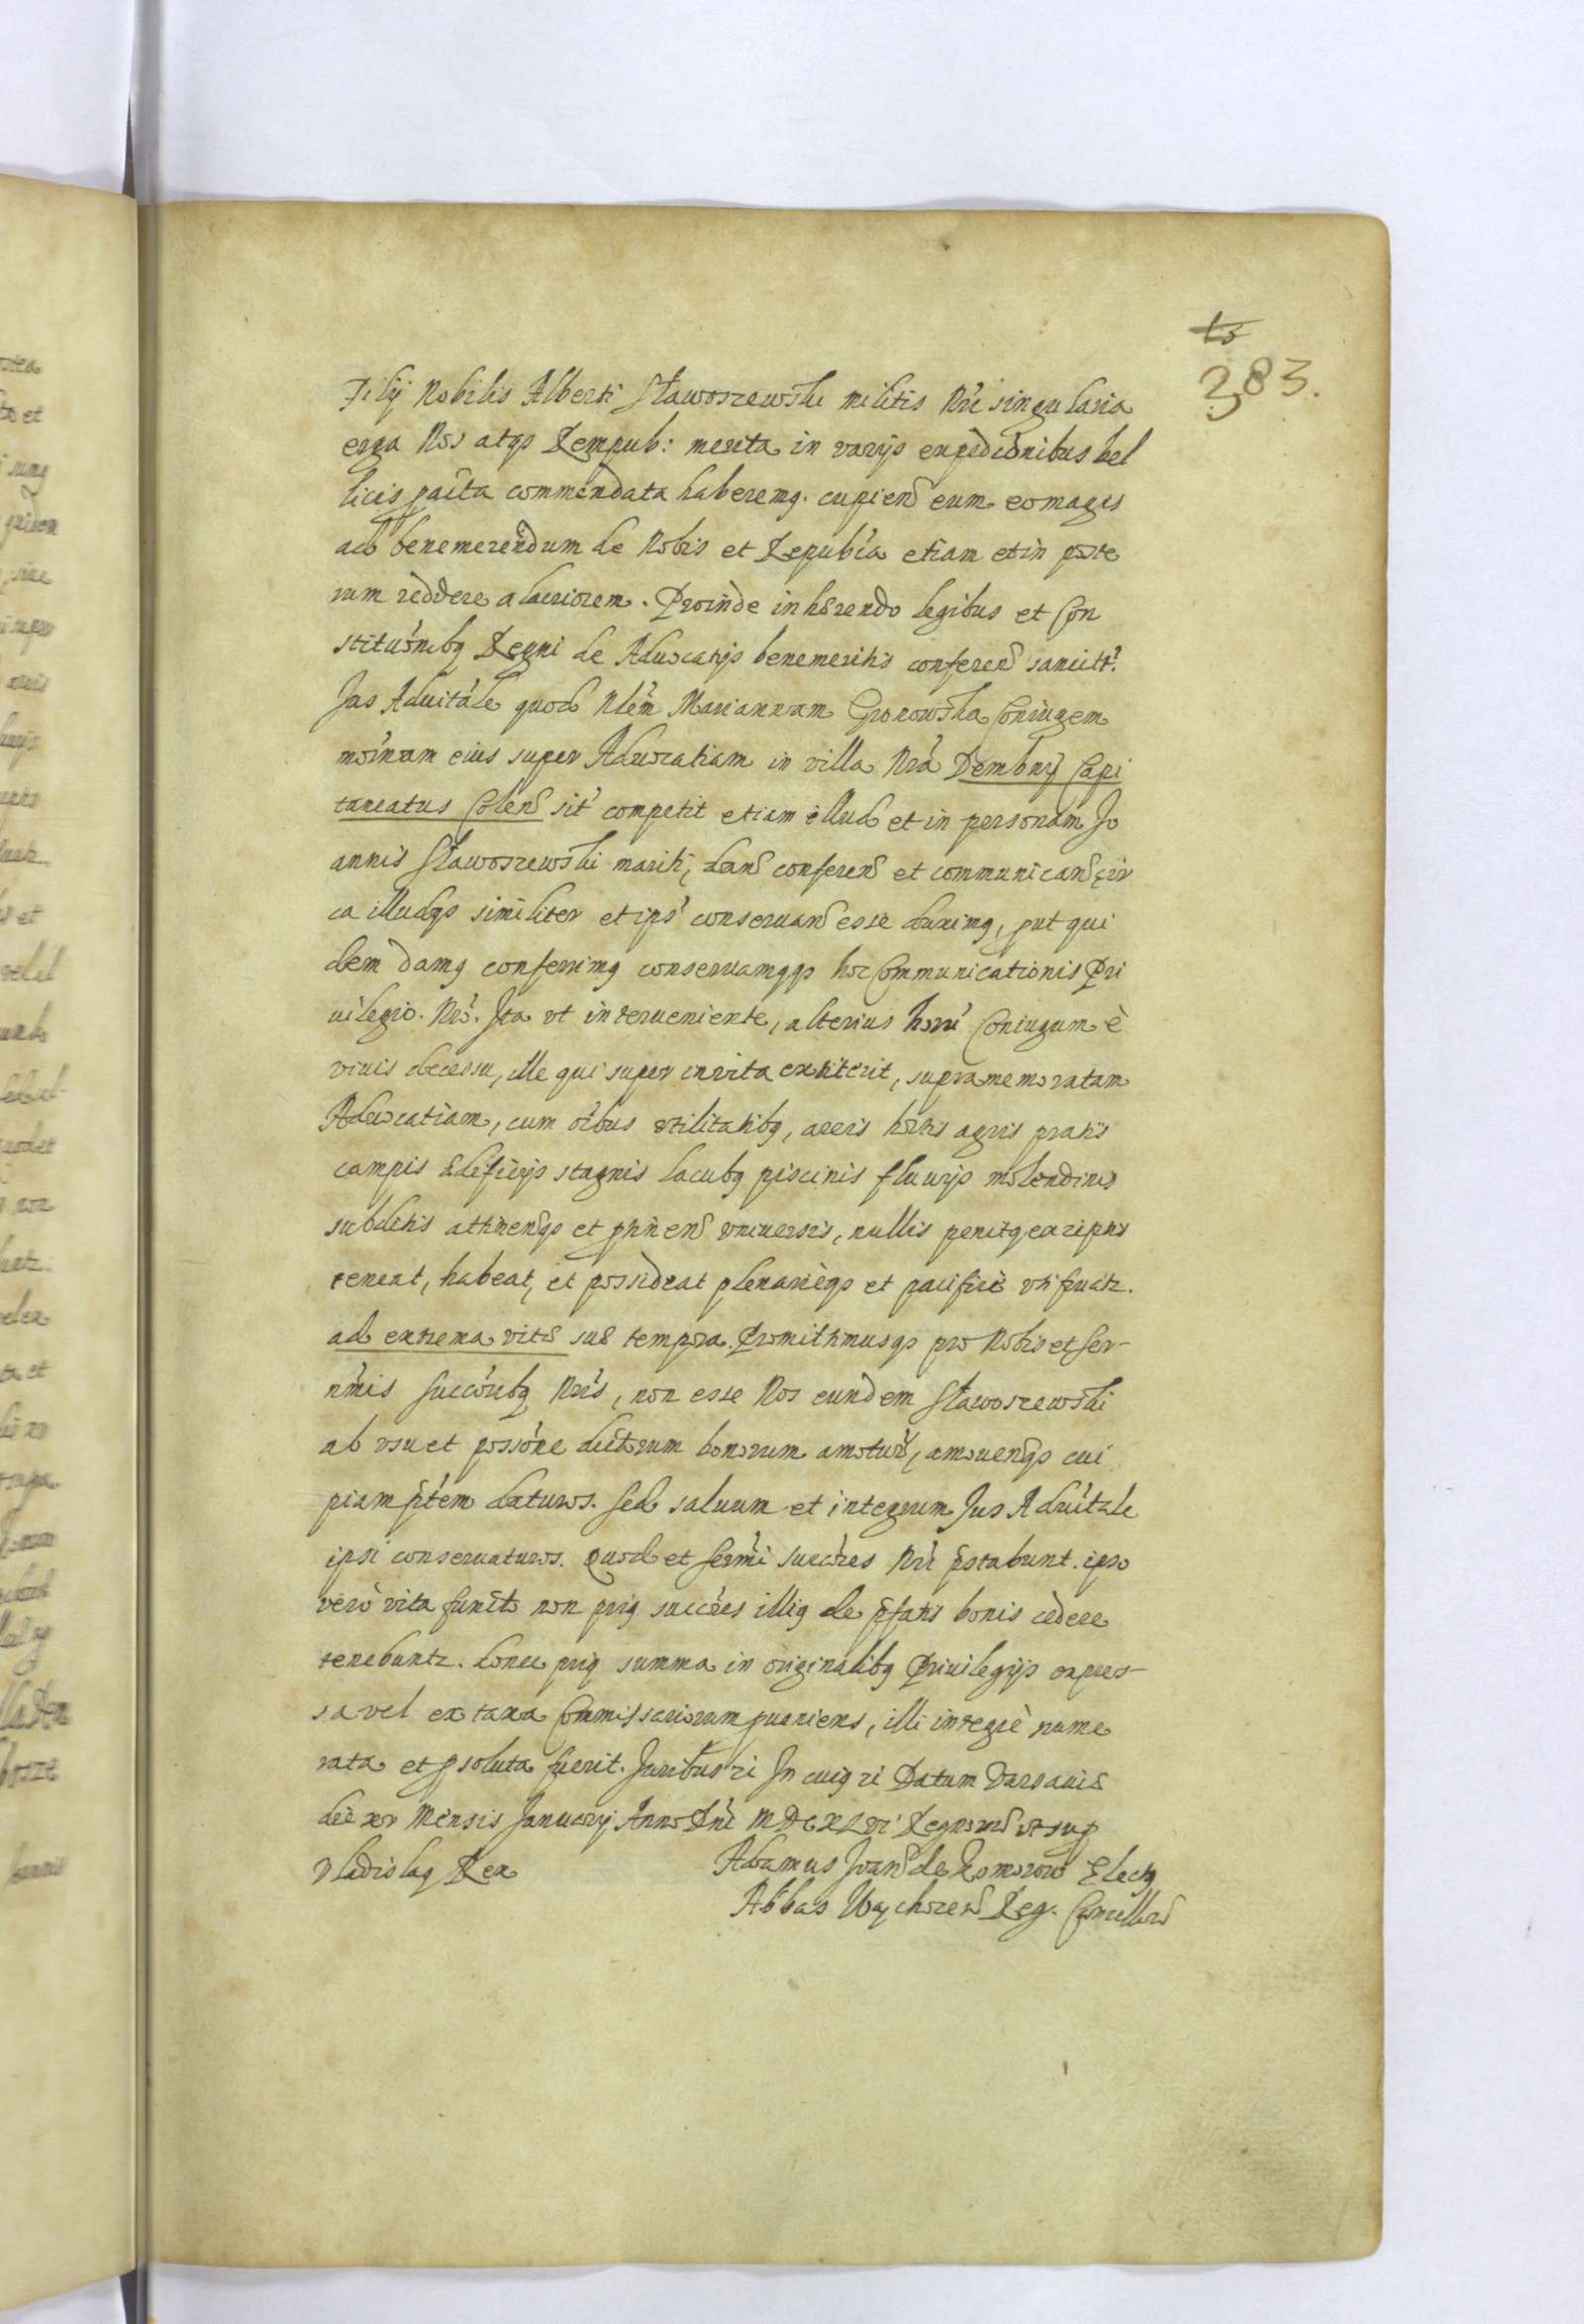 383.
Filij Nobilis Alberti Sławoszewski militis Nri singularia
erga Nos atqs Rempub: merita in varijs expedicionibus bel
licis parta commendata haberemq. cupien eum eo magis
ad benemerendum de Nobis et Republ'a etiam et in poste
rum reddere alacriorem. Proinde inhærendo legibus et Con
stituónibq Regni de Aduocatijs benemeritis conferen sancitt.
Jus Aduitále quod Nlem Mariannam Gronowska Coniugem
moínam eius super Aduocatiam in villa Nrá Dembnÿ Capi
taneatus Colen sit' competit etiam illud et in personam Jo
annis Sławoszewski mariti, dan conferen et communican cir
ca illudqs similiter et ips' conseruan esse duximq, put qui
dem damq conferimq conseruamqqs hoc Communicationis Pri
uilegio. Nro. Jta vt interueniente, alterius horu' Coniugum è
viuis decessu, ille qui super in vita extiterit, supramemoratam
Aduocatiam, cum oíbus vtilitatibq, areis hortis agris pratis
campis ædificijs stagnis lacubq piscinis fluuijs molendinis
subditis attinenqs et ptinen vniuersis, nullis penitq exceptis
teneat, habeat, et possideat plenariéqs et pacificè vti fruatr.
ad extrema vitæ suæ tempora. Promittimusqs pro Nobis et Ser-
nmis Succóribq Nris, non esse Nos eundem Sławoszewski
ab vsu et possóne dictorum bonorum amotur, amouenqs cui
piam ptem daturos. Sed saluum et integrum Jus Aduitale
ipsi conseruaturos. Quod et Sermi Succóres Nri pstabunt. ipso
verò vita functo non priq succóres illiq de pfatis bonis cedere
tenebuntr. donec priq summa in originalibq Priuilegijs expres-
sa vel ex taxa Commissariorum proueniens, illi integrè nume
rata et psoluta fuerit. Juribus ri In cuiq ri Datum Varsauiæ
die xv Mensis Januarij Anno Dni MDCXLVI Regnorum vt sup
Vladislaq Rex
Adamus Joan de Komorow Electq
Abbas Wąchocen Reg. Cancellar